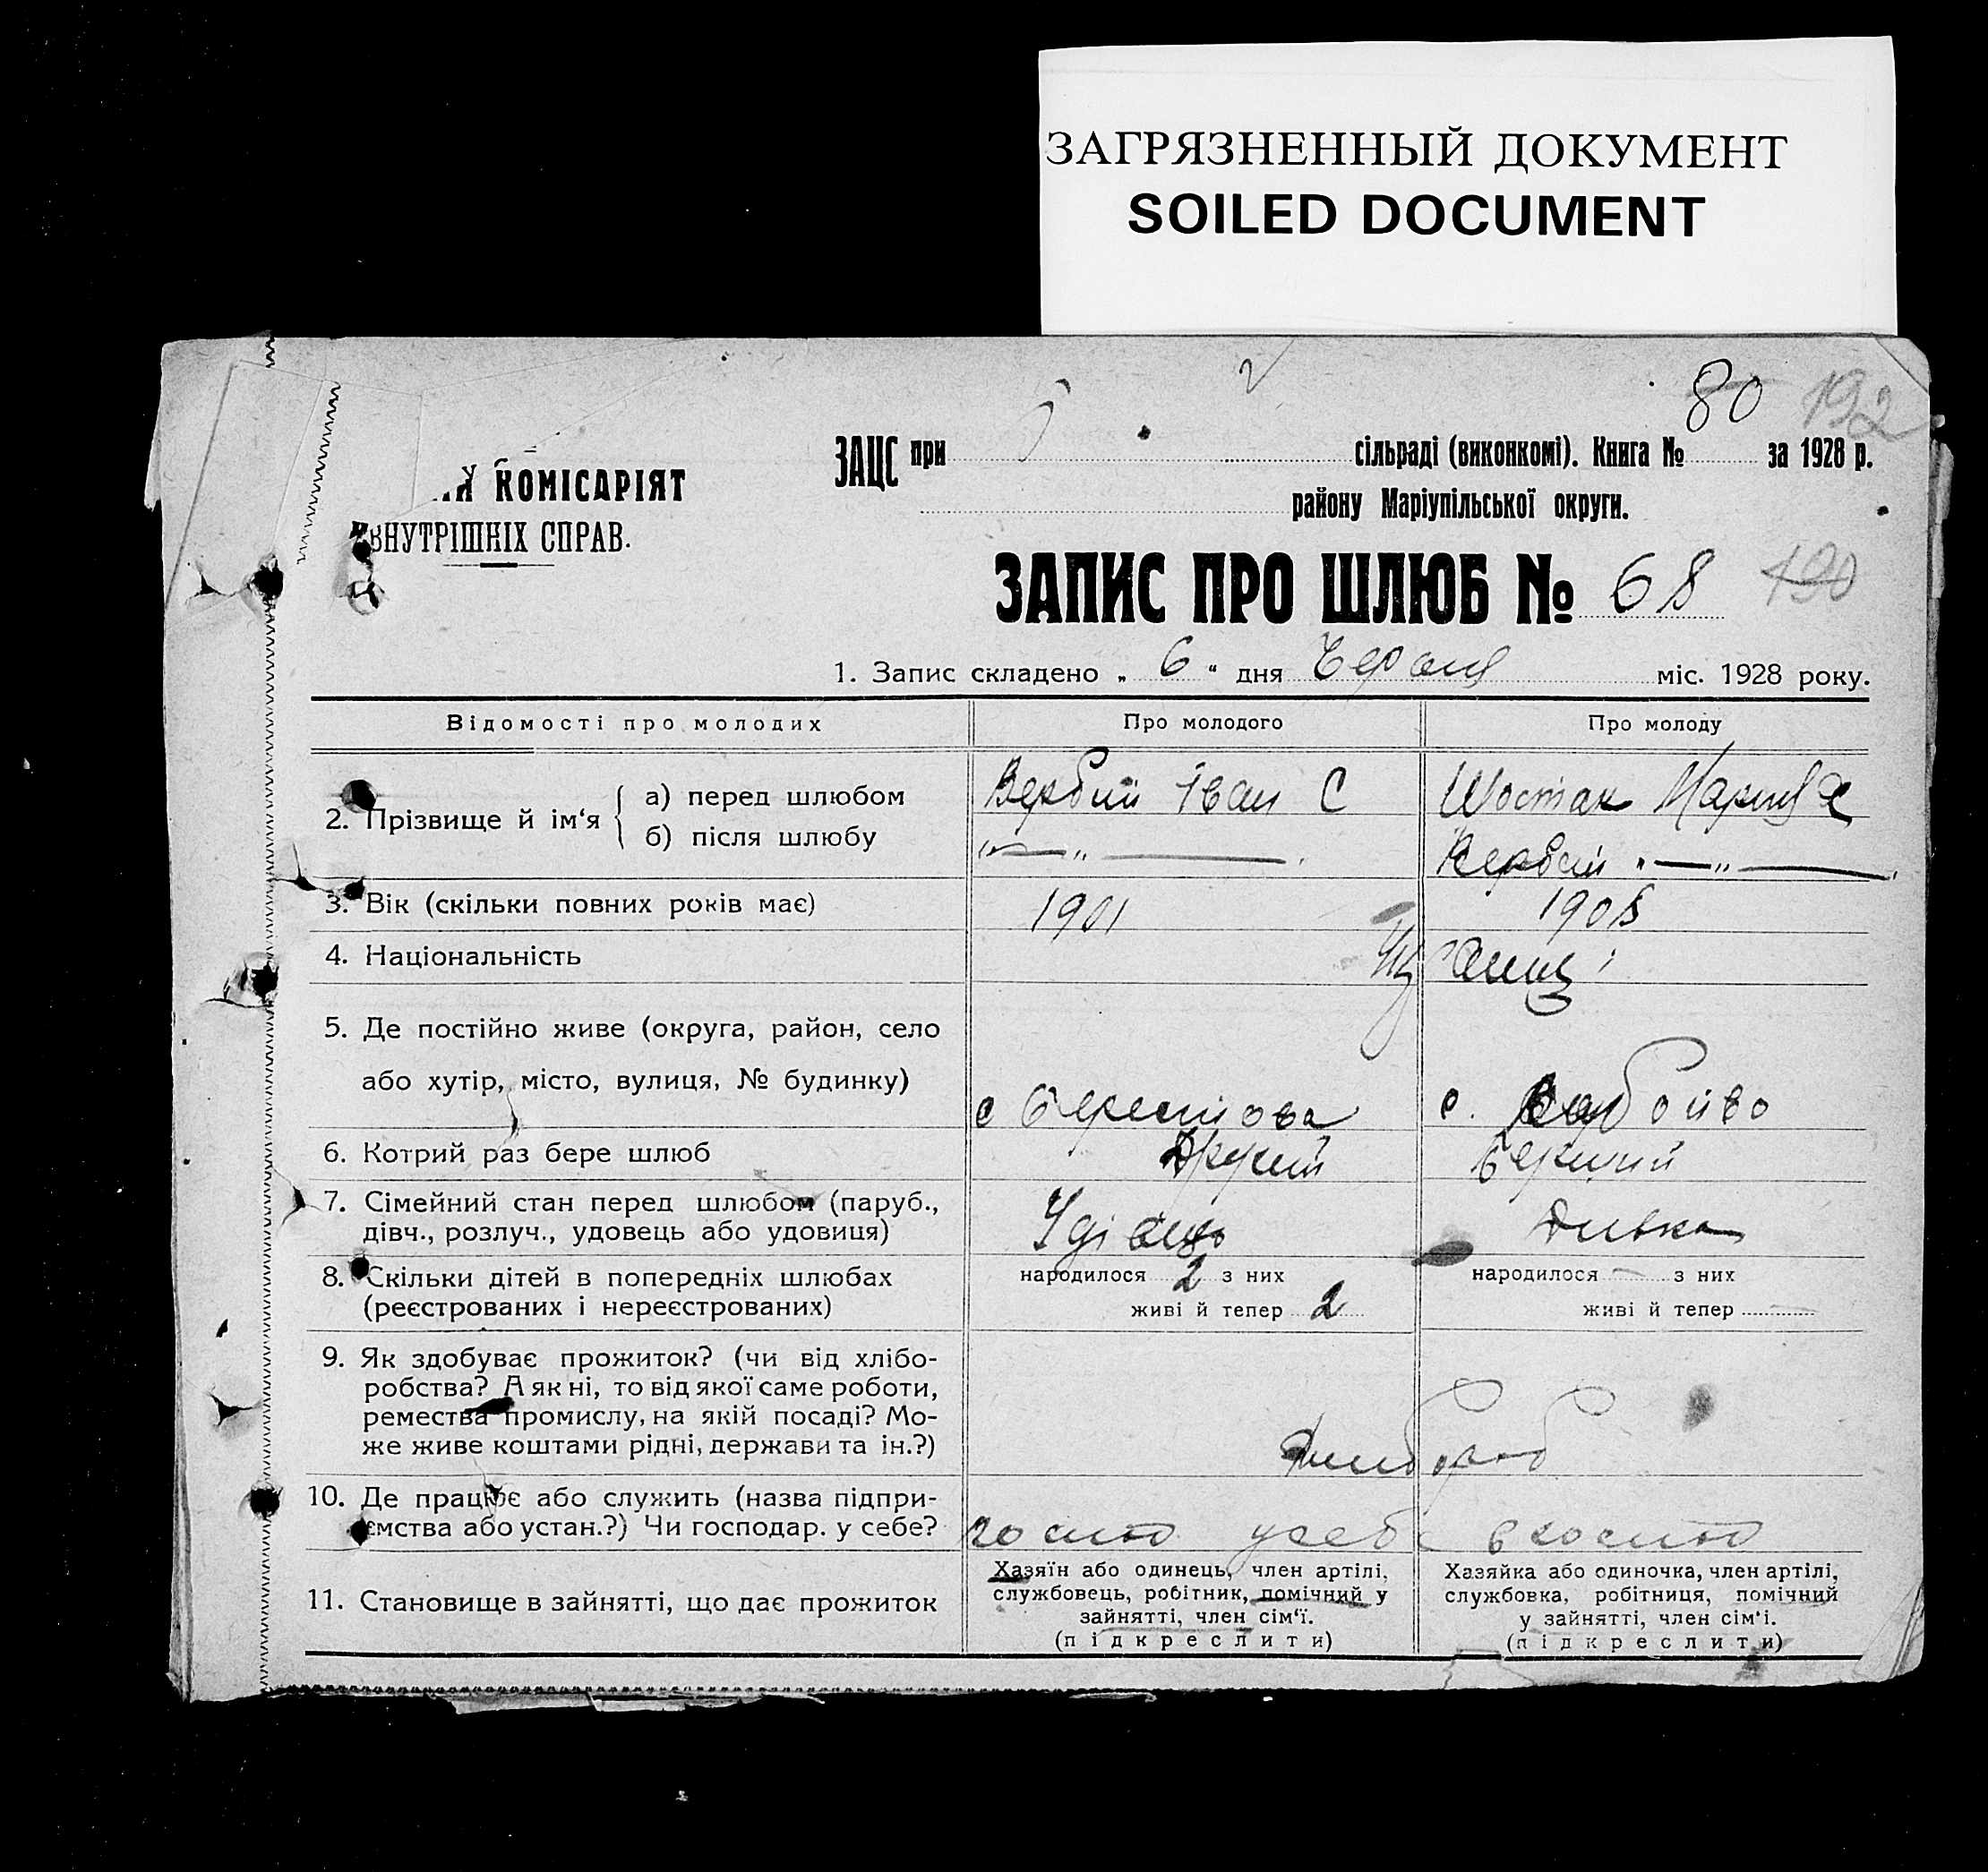 ЗАГРЯЗНЕННЫЙ ДОКУМЕНТ
SOILED DOCUMENT
80 192
ЗАЦС при сільраді (виконкомі). Книга № за 1928 р.
КОМІСАРІЯТ
району Маріупільської округи.
ВНУТРІШНІХ СПРАВ.
ЗАПИС ПРО ШЛЮБ № 68 190
1. Запис складено „ 6 “ дня міс. 1928 року.
Відомості про молодих Про молодого Про молоду
2. Прізвище й ім‘я { а) перед шлюбом Вербий Іван С Шостак
б) після шлюбу „—„— Вербий „—„—
3. Вік (скільки повних років має) 1901 1908
4. Національність
5. Де постійно живе (округа, район, село
або хутір, місто, вулиця, № будинку) с с.
6. Котрий раз бере шлюб Другий
7. Сімейний стан перед шлюбом (паруб.,
дівч., розлуч., удовець або удовиця) Дивка
8. Скільки дітей в попередніх шлюбах народилося 2 з них народилося — з них
(реєстрованих і нереєстрованих) живі й тепер 2 живі й тепер —
9. Як здобуває прожиток? (чи від хлібо-
робства? А як ні, то від якої саме роботи,
ремества промислу, на якій посаді? Мо-
же живе коштами рідні, держави та ін.?)
10. Де працює або служить (назва підпри-
ємства або устан.?) Чи господар. у себе?
11. Становище в зайнятті, що дає прожиток
Хазяїн або одинець, член артілі,
службовець, робітник, помічний у
зайнятті, член сім‘ї.
(підкреслити)
Хазяйка або одиночка, член артілі,
службовка, робітниця, помічний
у зайнятті, член сім‘і.
(підкреслити)